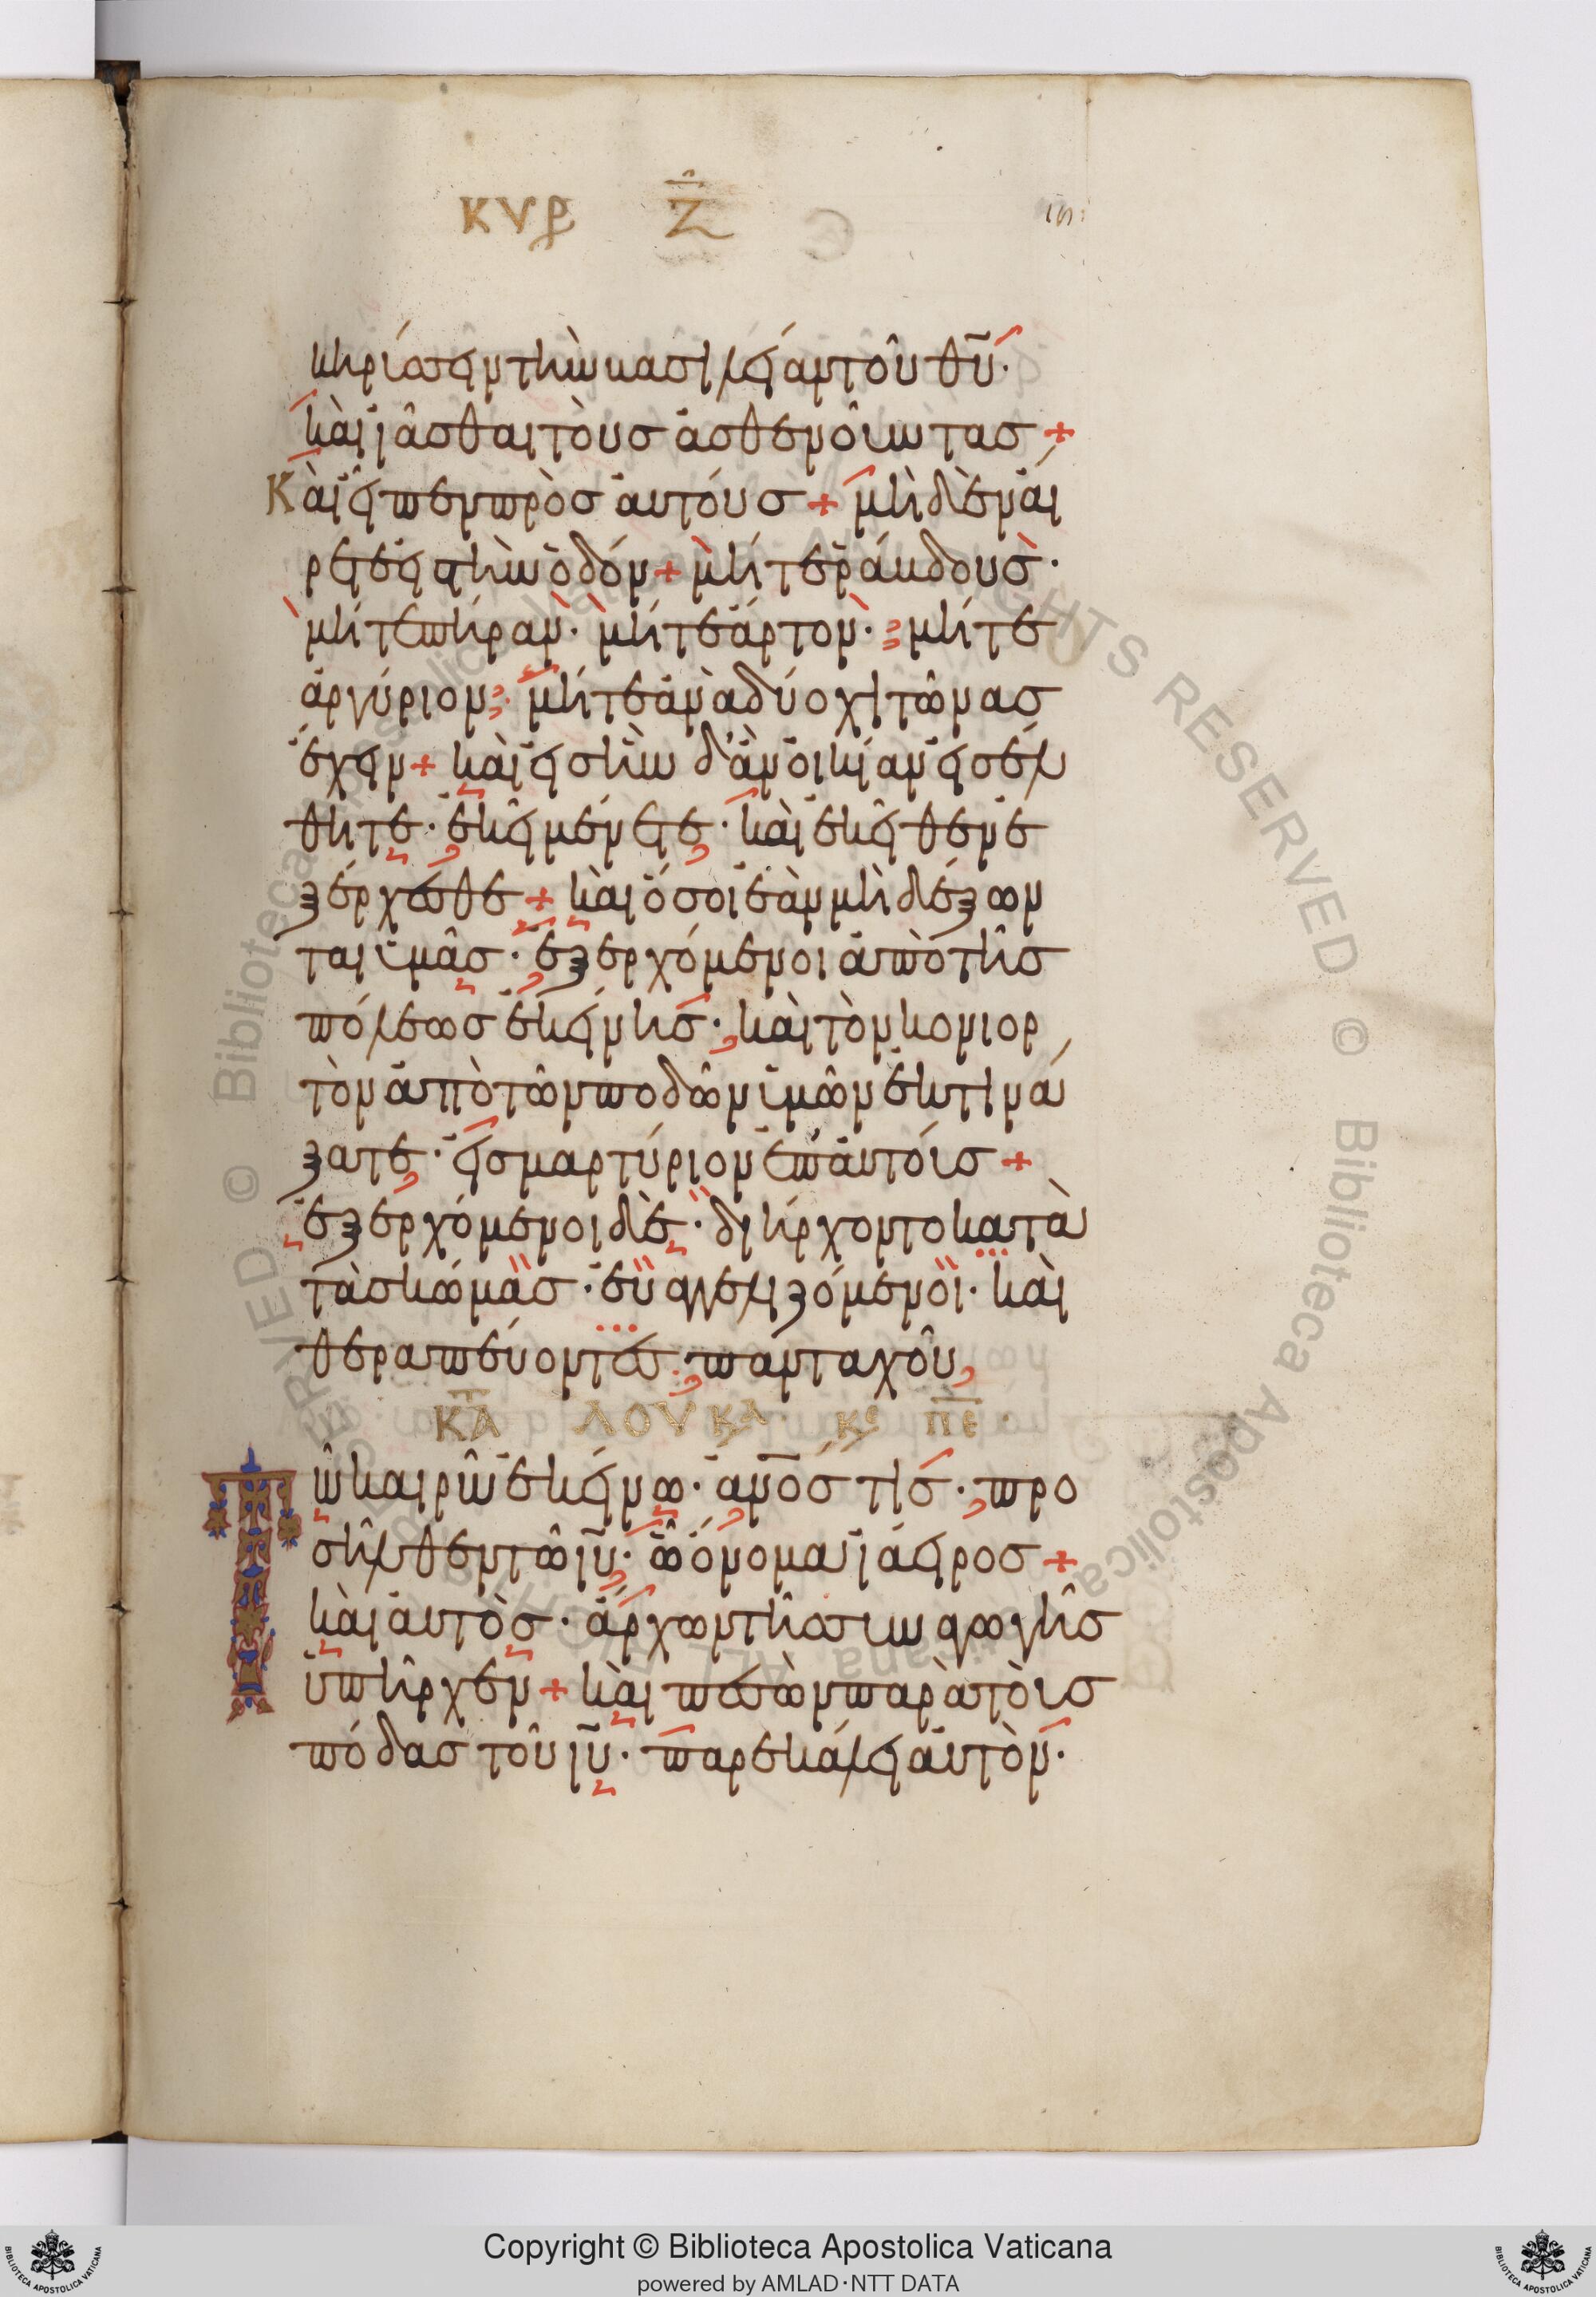 ΚΥΡ Ζ
κηρύσσειν τὴν βασιλείαν τοῦ θυ·
καὶ ἰᾶσθαι τοὺς ἀσθενοῦντας +
Καὶ εἶπεν πρὸς αὐτούς + μηδὲν αἴ
ρετε εἰς τὴν ὁδόν + μήτε ράβδους·
μήτε πήραν· μήτε ἄρτον· μήτε
ἀργύριον· μήτε ἀνὰ δύο χιτῶνας
ἔχειν + καὶ εἰς ἣν δ' ἂν οἰκίαν εἰσέλ
θητε· ἐκεῖ μένετε· καὶ ἐκεῖθεν ἐ
ξέρχεσθε + καὶ ὅσοι ἐὰν μὴ δέξων
ται ὑμᾶς· ἐξερχόμενοι ἀπὸ τῆς
πόλεως ἐκείνης· καὶ τὸν κονιορ
τὸν ἀπὸ τῶν ποδῶν ὑμῶν ἐκτινά
ξατε· εἰς μαρτύριον ἐπ' αὐτοῖς +
ἐξερχόμενοι δὲ· διήρχοντο κατὰ
τὰς κώμας· εὐαγγελιζόμενοι· καὶ
θεραπεύοντες· πανταχοῦ
ΚΥΡ ΛΟΥΚΑ ΚΕ ΠΕ
Τῶ καιρῶ ἐκείνω· ανός τίς· προ
σῆλθεν τῶ ιυ· ὧ ὄνομα ἰάειρος +
καὶ αὐτὸς· ἄρχων τῆς συναγωγῆς
ὑπῆρχεν + καὶ πεσὼν παρὰ τοὺς
πόδας τοῦ ιυ· παρεκάλει αὐτὸν·
Copyright © Biblioteca Apostolica Vaticana
powered by AMLAD·NTT DATA